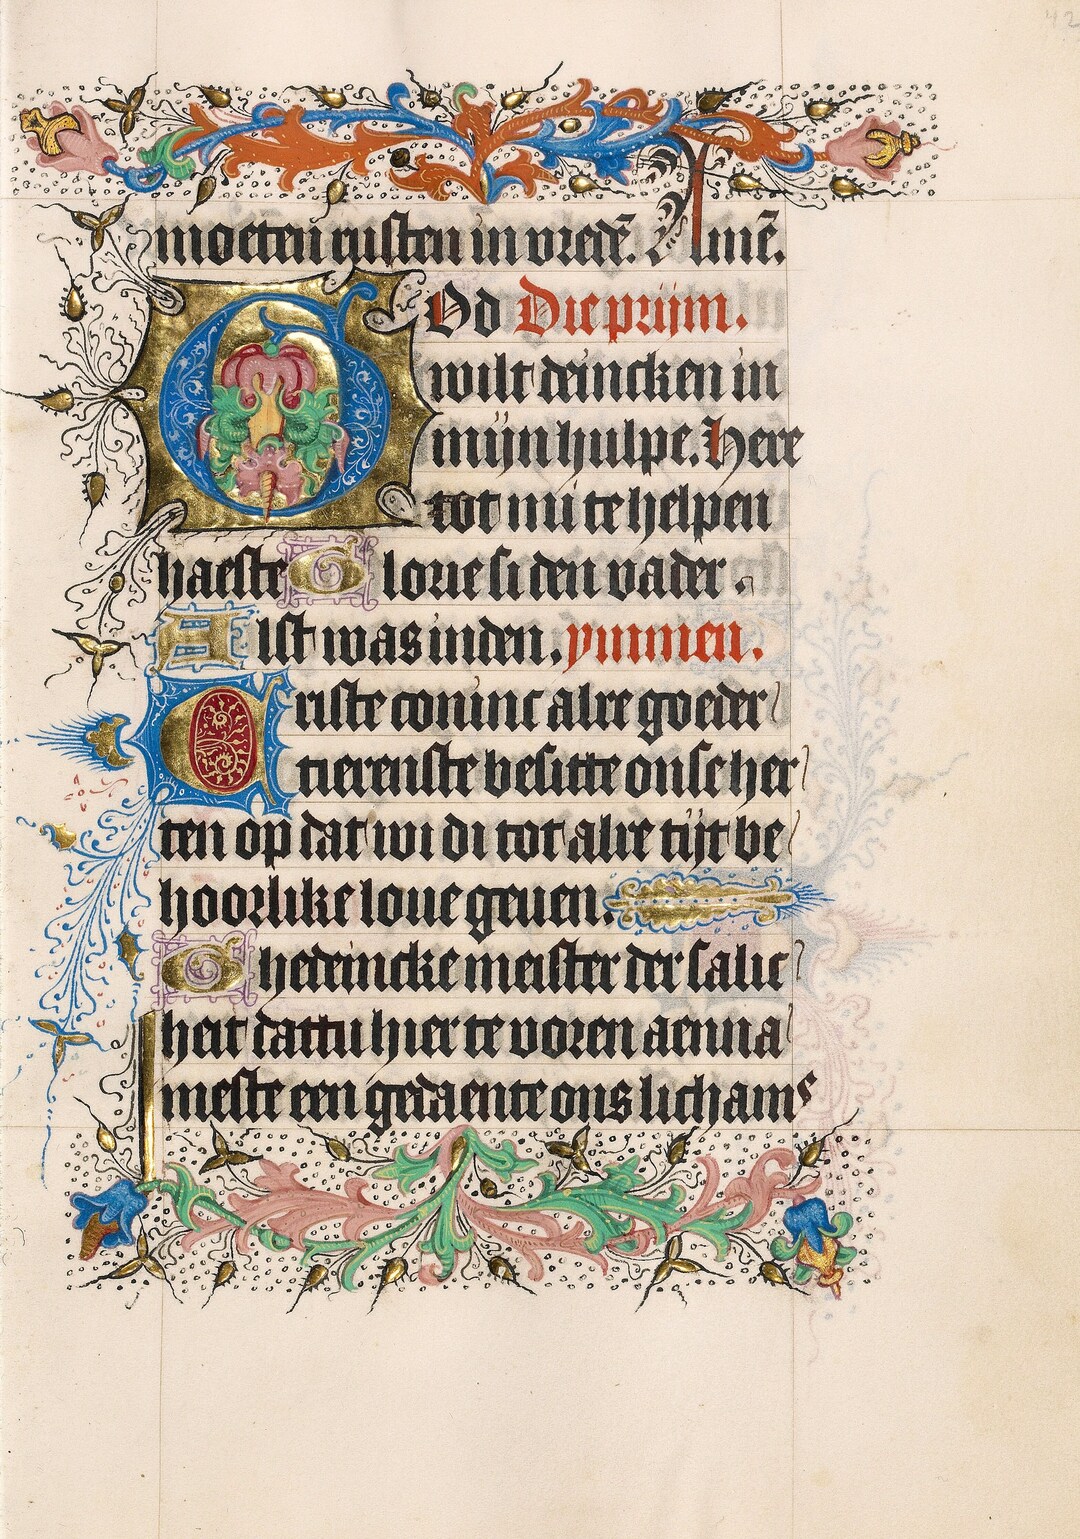 42
moeten rusten in vredẽ. Amẽ.
God Die prijm.
wilt deincken in
mijn hulpe. Here
tot mi te helpen
haeste Glorie si den vader.
Alst was inden. ymmen.
Criste coninc alre goeder
tierenste besitte onse her
ten op dat wi di tot alre tijt be
hoorlike loue geuen.
Ghedeincke meister der salic
heit dattu hier te voren aenna
meste een gedaente ons lichams